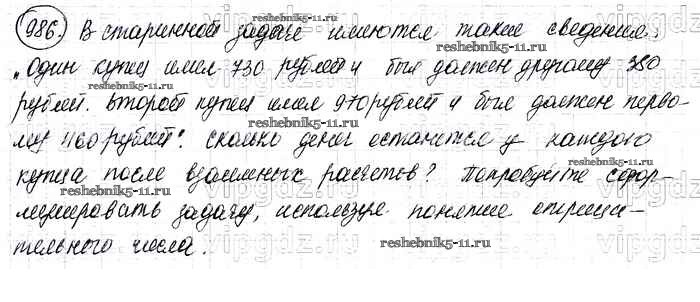 986. В старинной задаче имеются такие сведения:
"Один купец имел 730 рублей и был должен другому 380
рублей. Второй купец имел 970 рублей и был должен перво-
му 460 рублей". Сколько денег останется у каждого
купца после взаимных расчетов? Попробуйте сфор-
мулировать задачу, используя понятие отрица-
тельного числа.
reshebnik5-11.ru
reshebnik5-11.ru
reshebnik5-11.ru
reshebnik5-11.ru
reshebnik5-11.ru
reshebnik5-11.ru
reshebnik5-11.ru